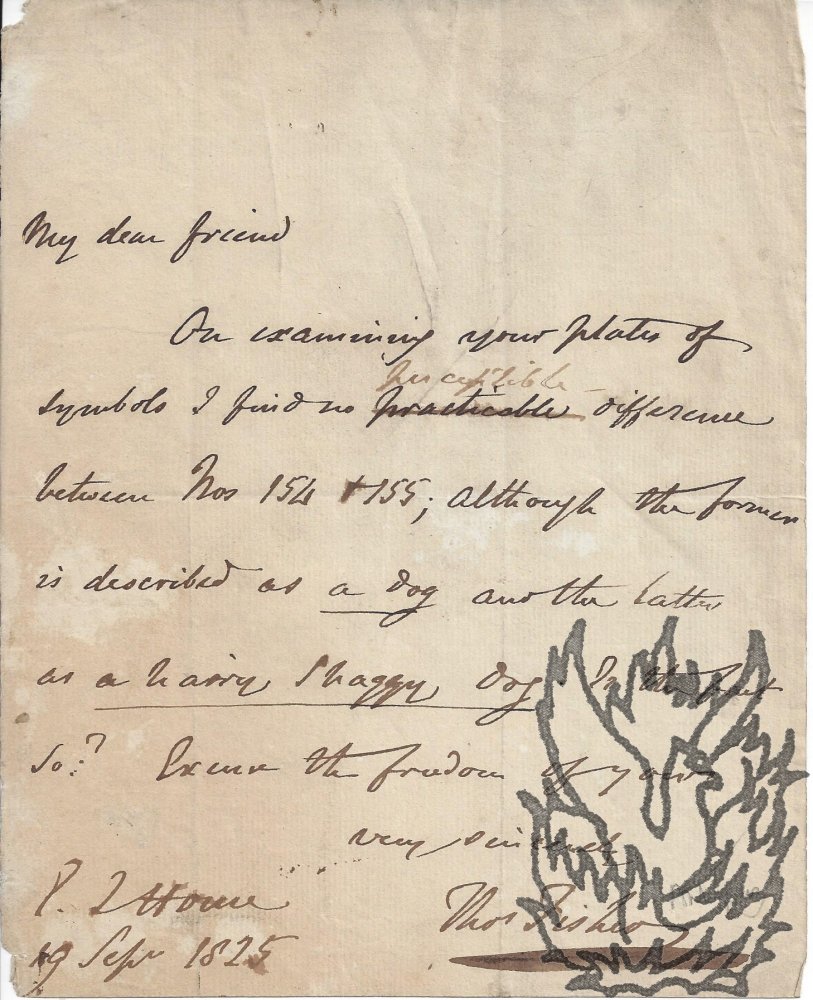 My dear friend
On examining your plates of
perceptible
symbols I find no practicable difference
between Nos 154 + 155; although the former
is described as a dog and the latter
as a hairy shaggy dog. Is the fact
so? Excuse the freedom of yours
very sincerely
E. I House
Thos Fisher
19 Sepr 1825